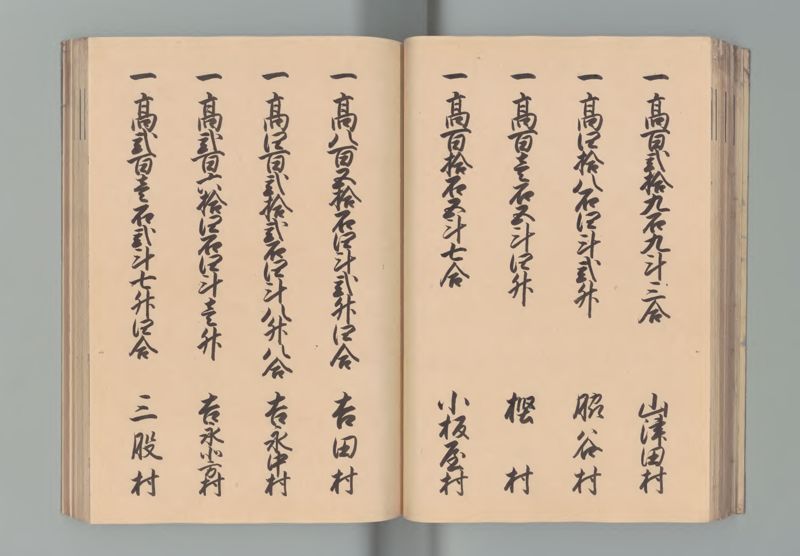 一 高百弐拾九石九斗三合 山津田村
一 高四拾八石四斗弐升 昭谷村
一 高百壱石五斗四升 樫村
一 高百拾石五斗七合 小板屋村
一 高八百五拾石四斗弐升四合 吉田村
一 高四百弐拾弐石四斗八升八合 吉永中村
一 高弐百六拾四石四斗壱升 吉永小方村
一 高弐百壱石弐斗七升四合 三股村